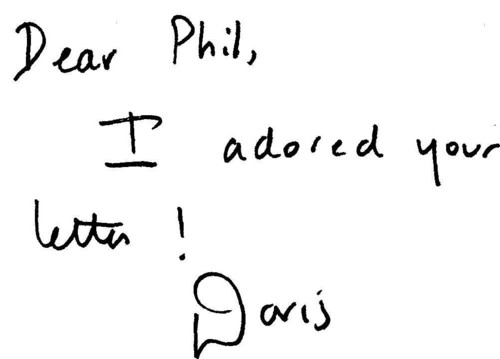 Dear Phil,
I adored your
letter !
Doris